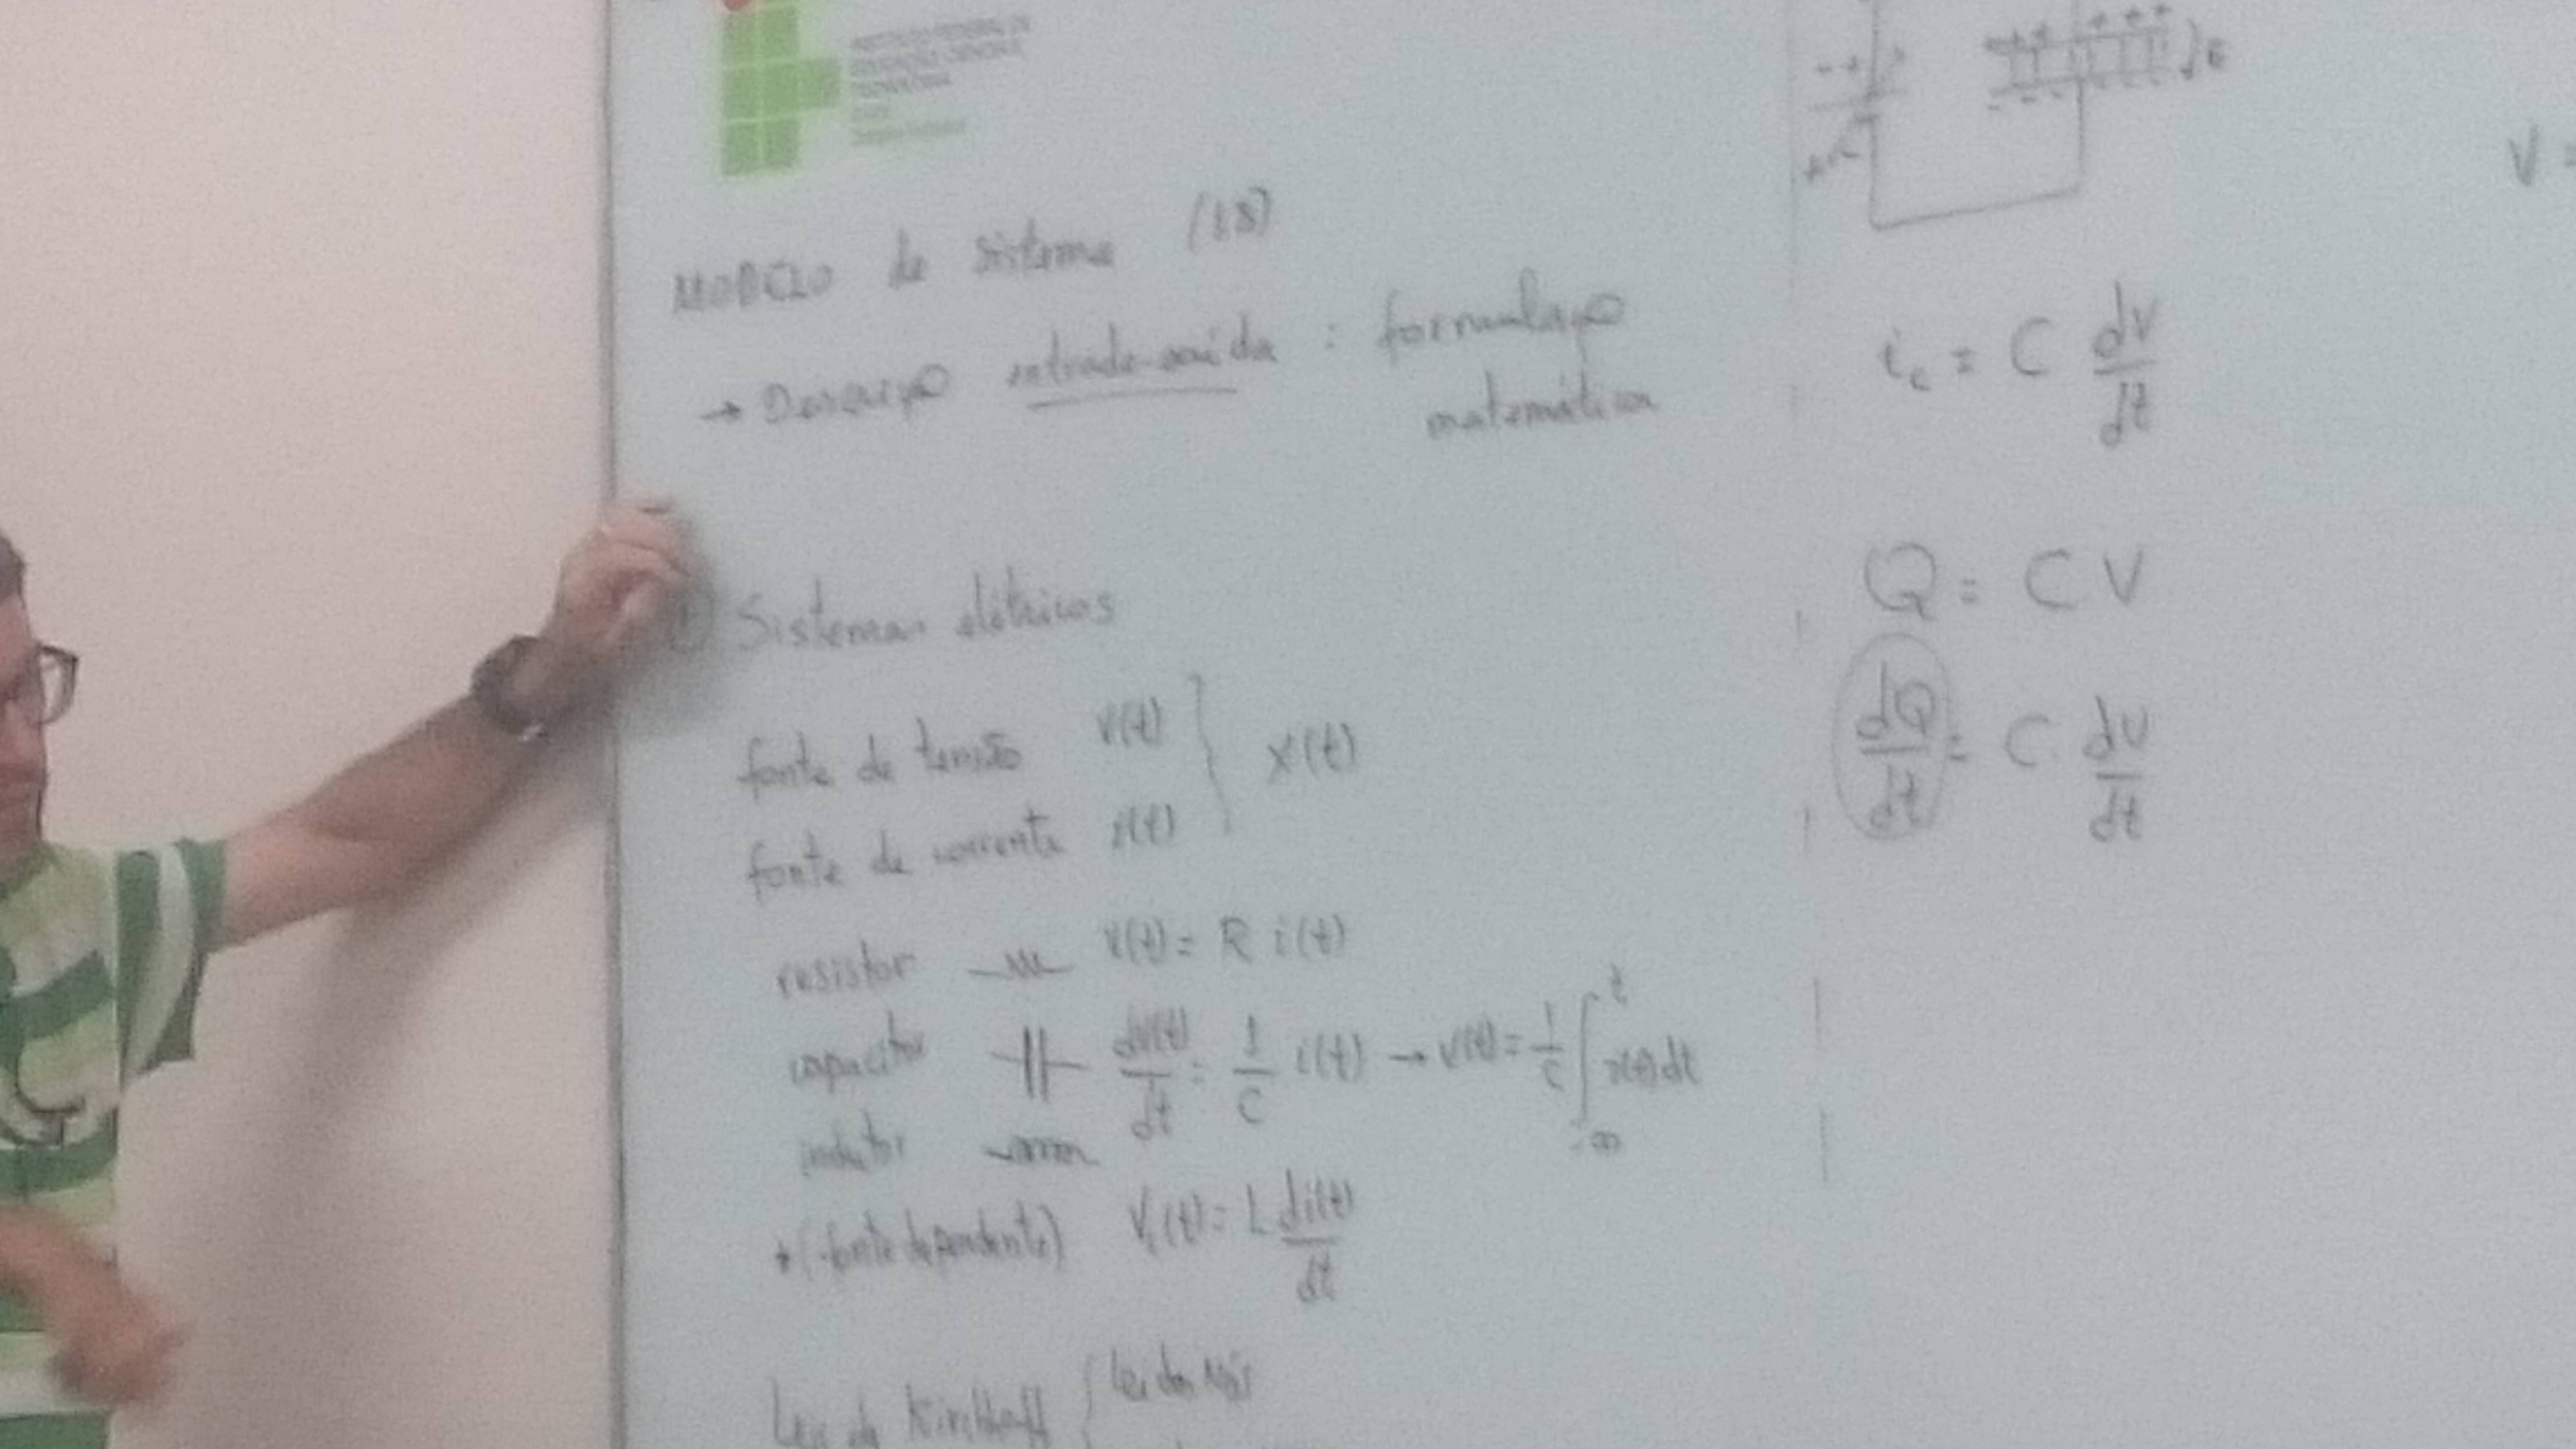 INSTITUTO FEDERAL DE
EDUCAÇÃO, CIÊNCIA E
TECNOLOGIA
MODELO de sistema (1.8)
→ Descrição entrada-saída : formulação
matemática
1) Sistemas elétricos
fonte de tensão v(t) } x(t)
fonte de corrente i(t)
resistor v(t) = R i(t)
capacitor dv(t)/dt = 1/C i(t) → v(t) = 1/C ∫ t -∞ i(t) dt
indutor
+ (fonte dependente) V(t) = L di(t)/dt
Leis de Kirchhoff { Lei dos Nós
+++
i_c = C dV/dt
Q = C V
dQ/dt = C dV/dt
V =